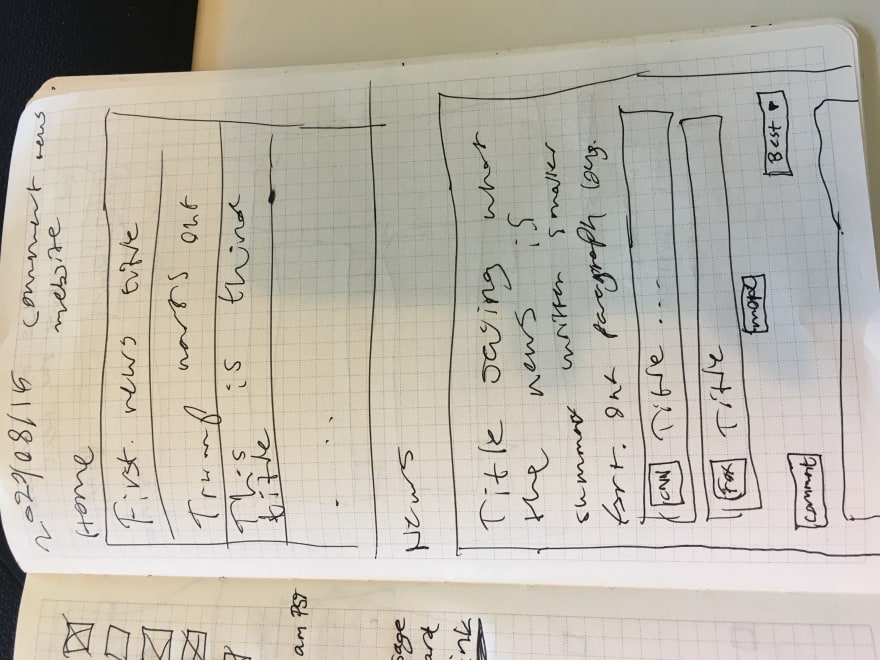 2020/08/15 comment news
website
Home
First news title
Trump wants out
This is third
title
...
News
Title saying what
the news is
summary written smaller
font. one paragraph long.
CNN Title ...
Fox Title
more
comment Best
am PST